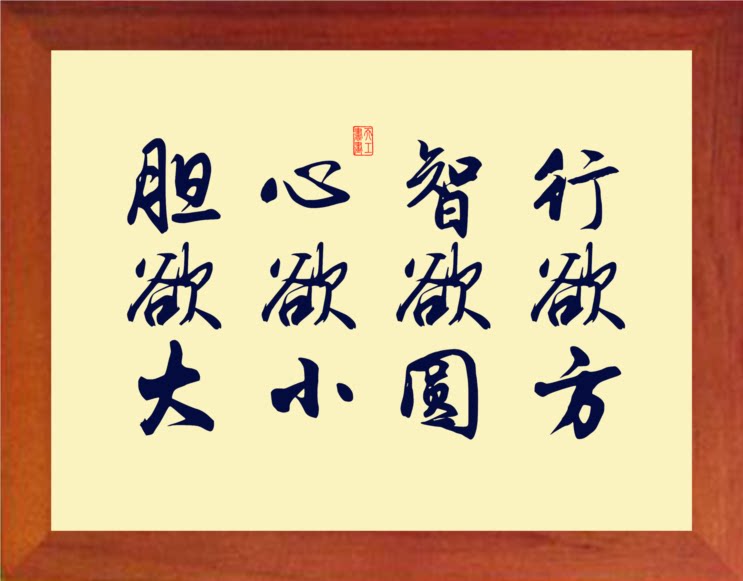 胆欲大
心欲小
智欲圓
行欲方